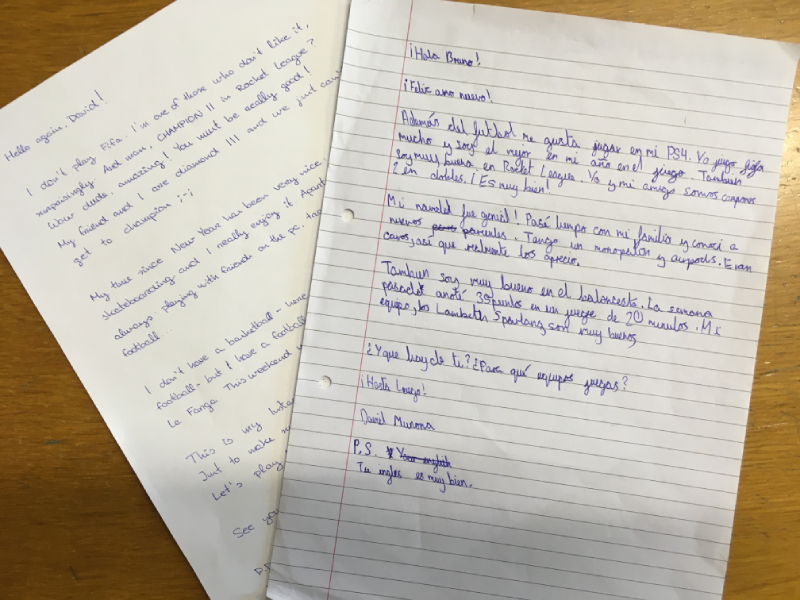 Hello again, David!
I don't play Fifa. I'm one of those who don't like it,
surprisingly. And man, CHAMPION II in Rocket League?
Wow dude, amazing! You must be really good!
My friend and I are diamond III and we just can
get to champion ;-;
My time since New Year has been very nice.
skateboarding and I really enjoy it. Apart
always: playing with friends on the pc,
football...
I don't have a basketball-
football- but I have a football
La Fanga. This weekend
This is my
Just to make
Let's play
See you
¡Hola Bruno!
¡Feliz ano nuevo!
Además del futbol me gusta jugar en mi PS4. Yo juego fifa
mucho y soy el mejor en mi año en el juego. Tambien
soy muy bueno en Rocket League. Yo y mi amigo somos campones
2 en dobles. ¡Es muy bien!
Mi navidad fue genial! Pasé tiempo con mi familia y conocí a
nuevos parientes. Tengo un monopatin y airpods. Eran
caros, así que realmente los aprecio.
Tambien soy muy bueno en el baloncesto. La semana
pasada anoté 30 puntos en un juego de 20 minutos. Mi
equipo, los Lambeth Spartans, son muy buenos
¿Y que hay de ti? ¿Para qué equipos juegas?
¡Hasta Luego!
David
P.S. Your english
Tu ingles es muy bien.